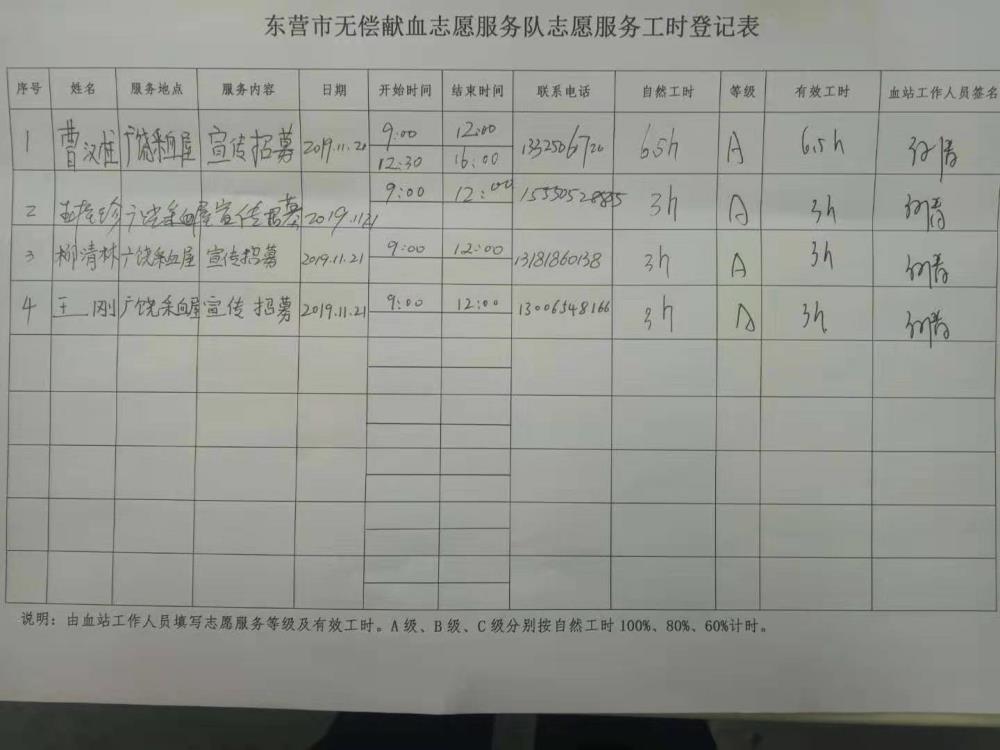 东营市无偿献血志愿服务队志愿服务工时登记表
序号 姓名 服务地点 服务内容 日期 开始时间 结束时间 联系电话 自然工时 等级 有效工时 血站工作人员签名
1 曹汉 广饶采血屋 宣传招募 2019.11.20 9:00 12:00 13325067 6.5h A 6.5h
12:30 16:00
2 珍 广饶采血屋 宣传招募 2019.11.21 9:00 12:00 15550528885 3h A 3h
3 柳清林 广饶采血屋 宣传招募 2019.11.21 9:00 12:00 13181860138 3h A 3h
4 王刚 广饶采血屋 宣传招募 2019.11.21 9:00 12:00 13006548166 3h A 3h
说明：由血站工作人员填写志愿服务等级及有效工时。A级、B级、C级分别按自然工时100%、80%、60%计时。